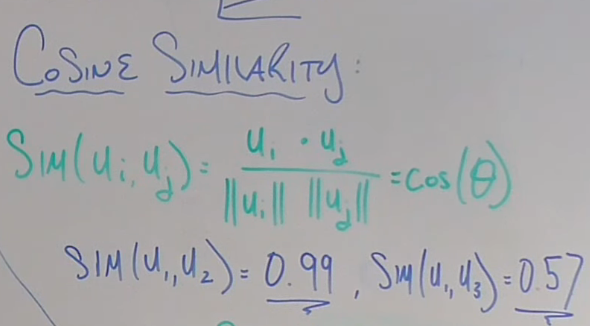 COSINE SIMILARITY:
SIM(ui, uj) = ui · uj / ||ui|| ||uj|| = cos(θ)
SIM(u1, u2) = 0.99, SIM(u1, u3) = 0.57